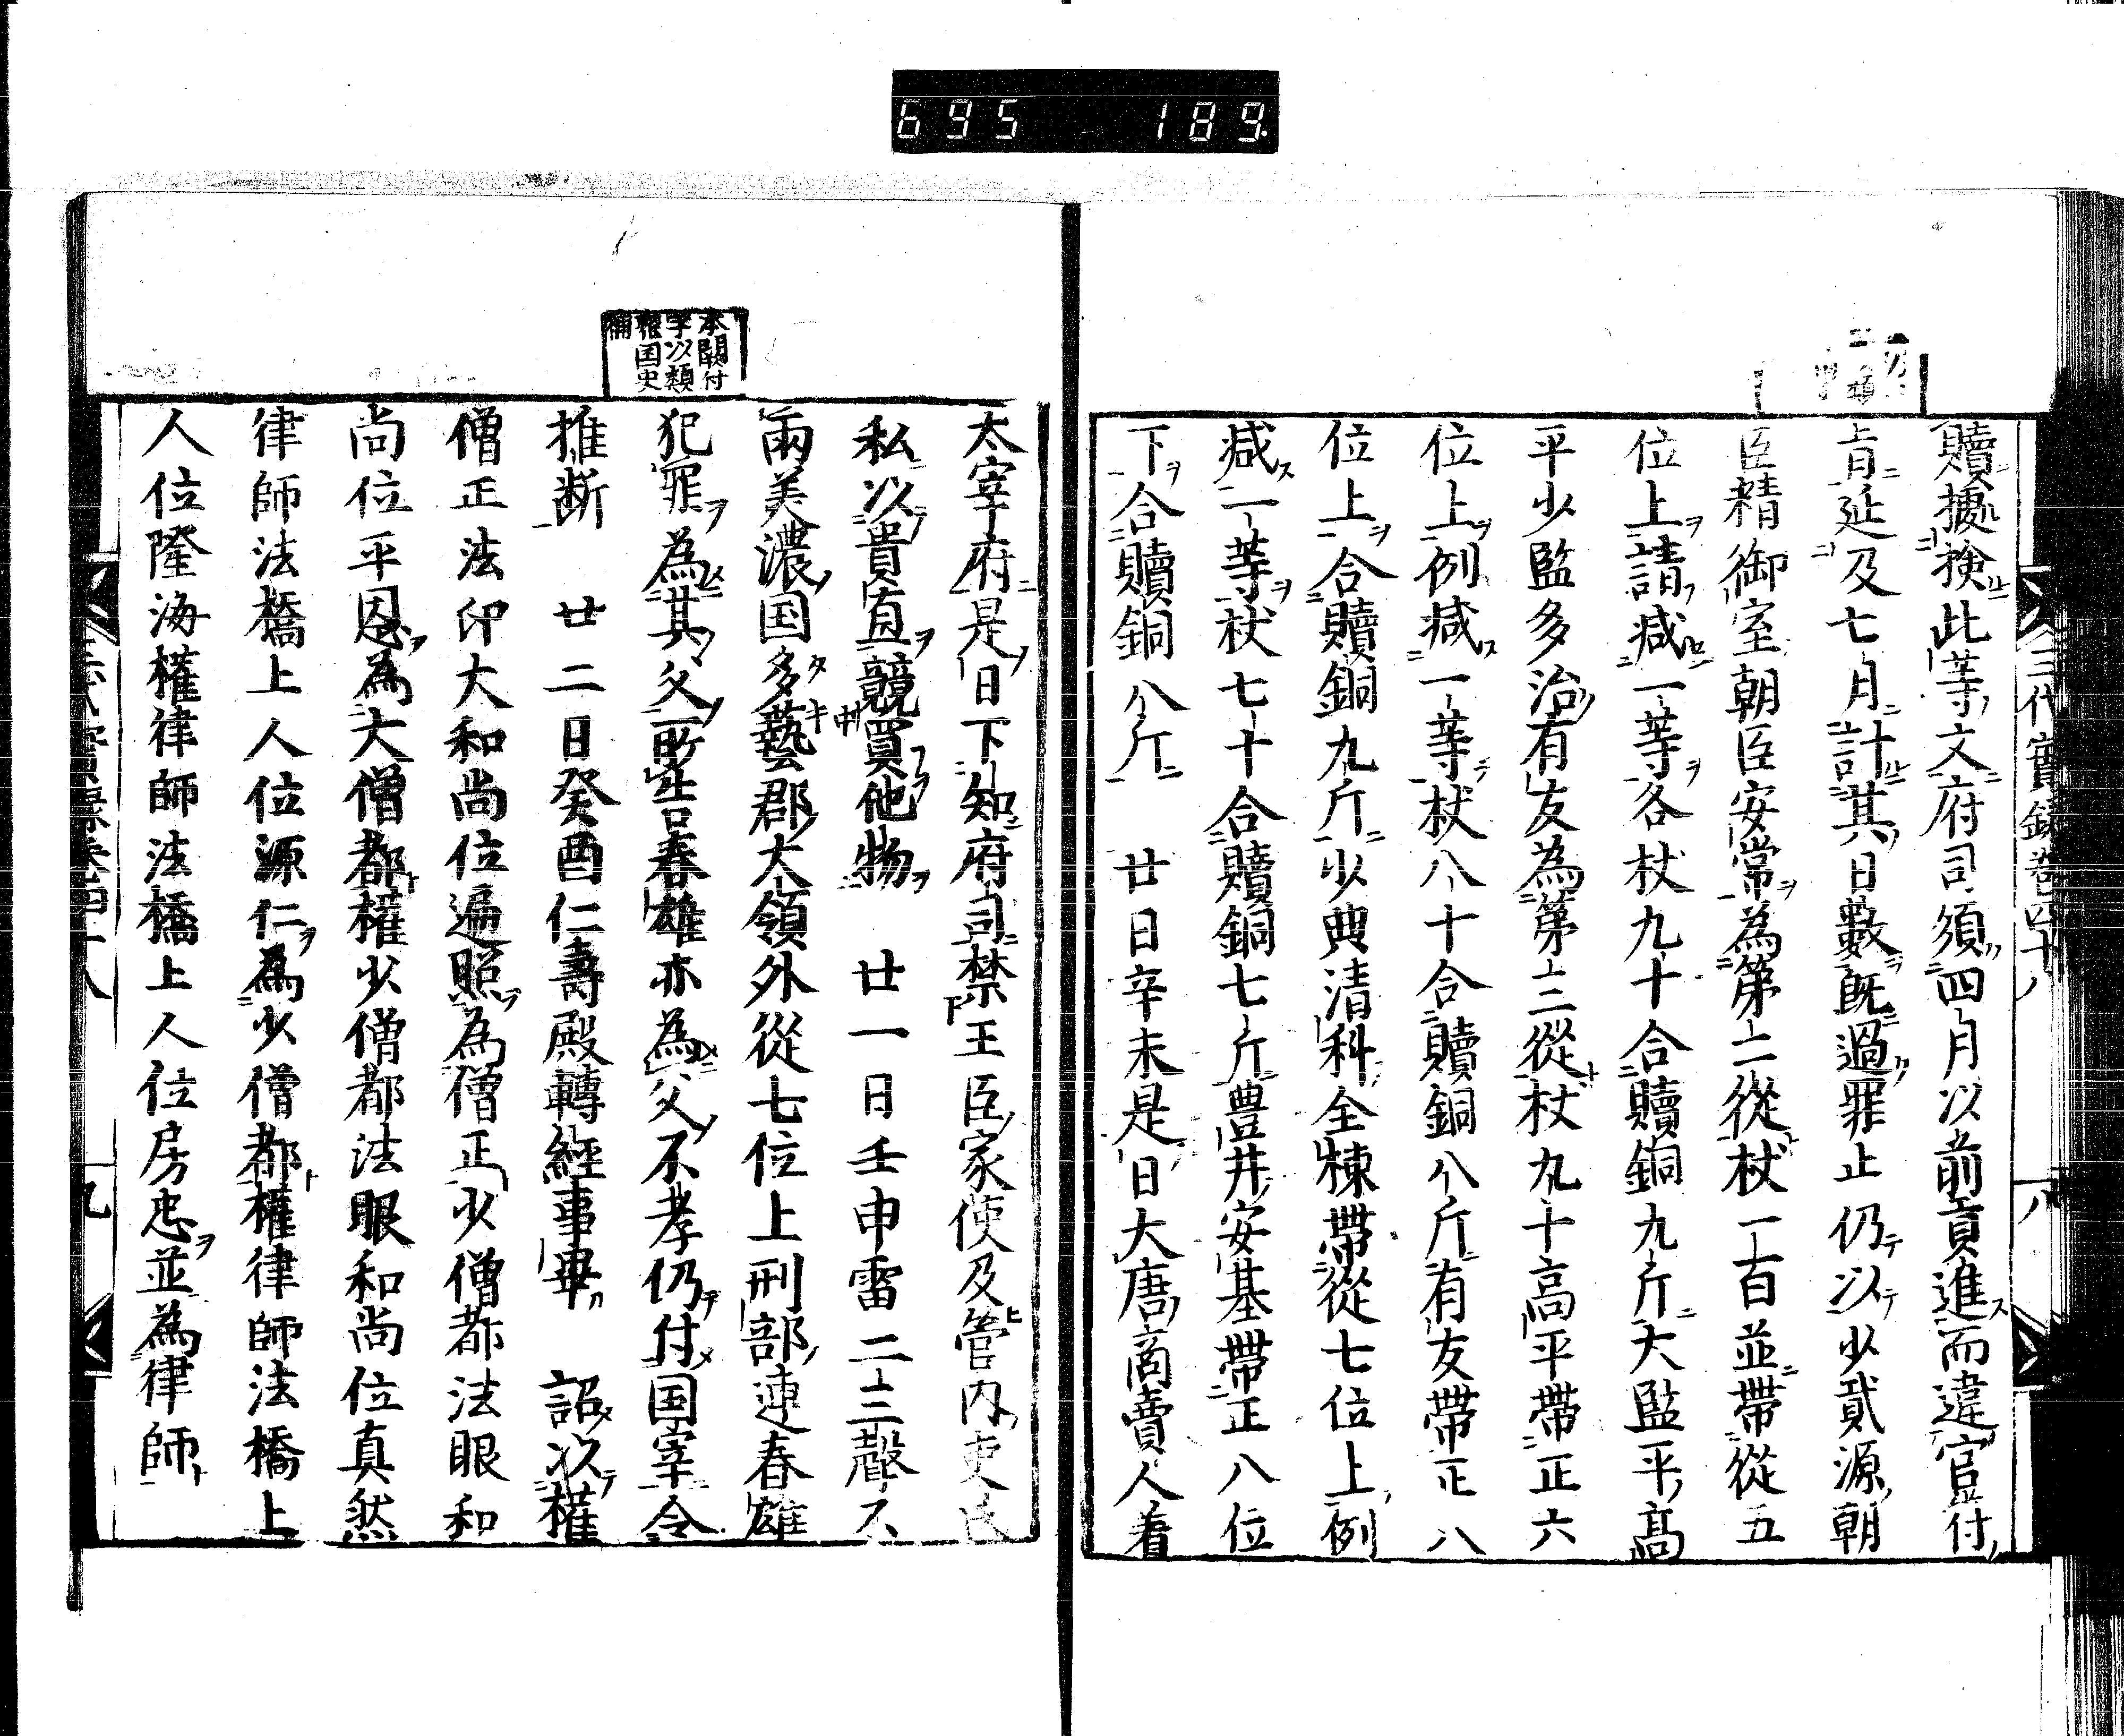 695 189.
贖據檢此等文府司須四月以前貢進而違官符
旨延及七月計其日數既過罪止仍以少貳源朝
臣精御室朝臣安常為第二從杖一百並帶從五
位上請减一等各杖九十合贖銅九斤大監平高
平少監多治有友為第三從杖九十高平帶正六
位上例减一等杖八十合贖銅八斤有友帶正八
位上合贖銅九斤少典清科全棟帶從七位上例
减一等杖七十合贖銅七斤豊井安基帶正八位
下合贖銅八斤 廿日辛未是日大唐商賣人着
三代實錄卷四十八
八
太宰府是日下知府司禁王臣家使及管内吏民
私以貴直競買他物 廿一日壬申雷二三聲不
雨美濃国多藝郡大領外從七位上刑部連春雄
犯罪為其父所告春雄亦為父不孝仍付国宰令
推断 廿二日癸酉仁壽殿轉經事畢 詔以權
僧正法印大和尚位遍照為僧正少僧都法眼和
尚位平恩為大僧都權少僧都法眼和尚位真然
律師法橋上人位源仁為少僧都權律師法橋上
人位隆海權律師法橋上人位房忠並為律師
本闕付
字以類
聚国史
補
九